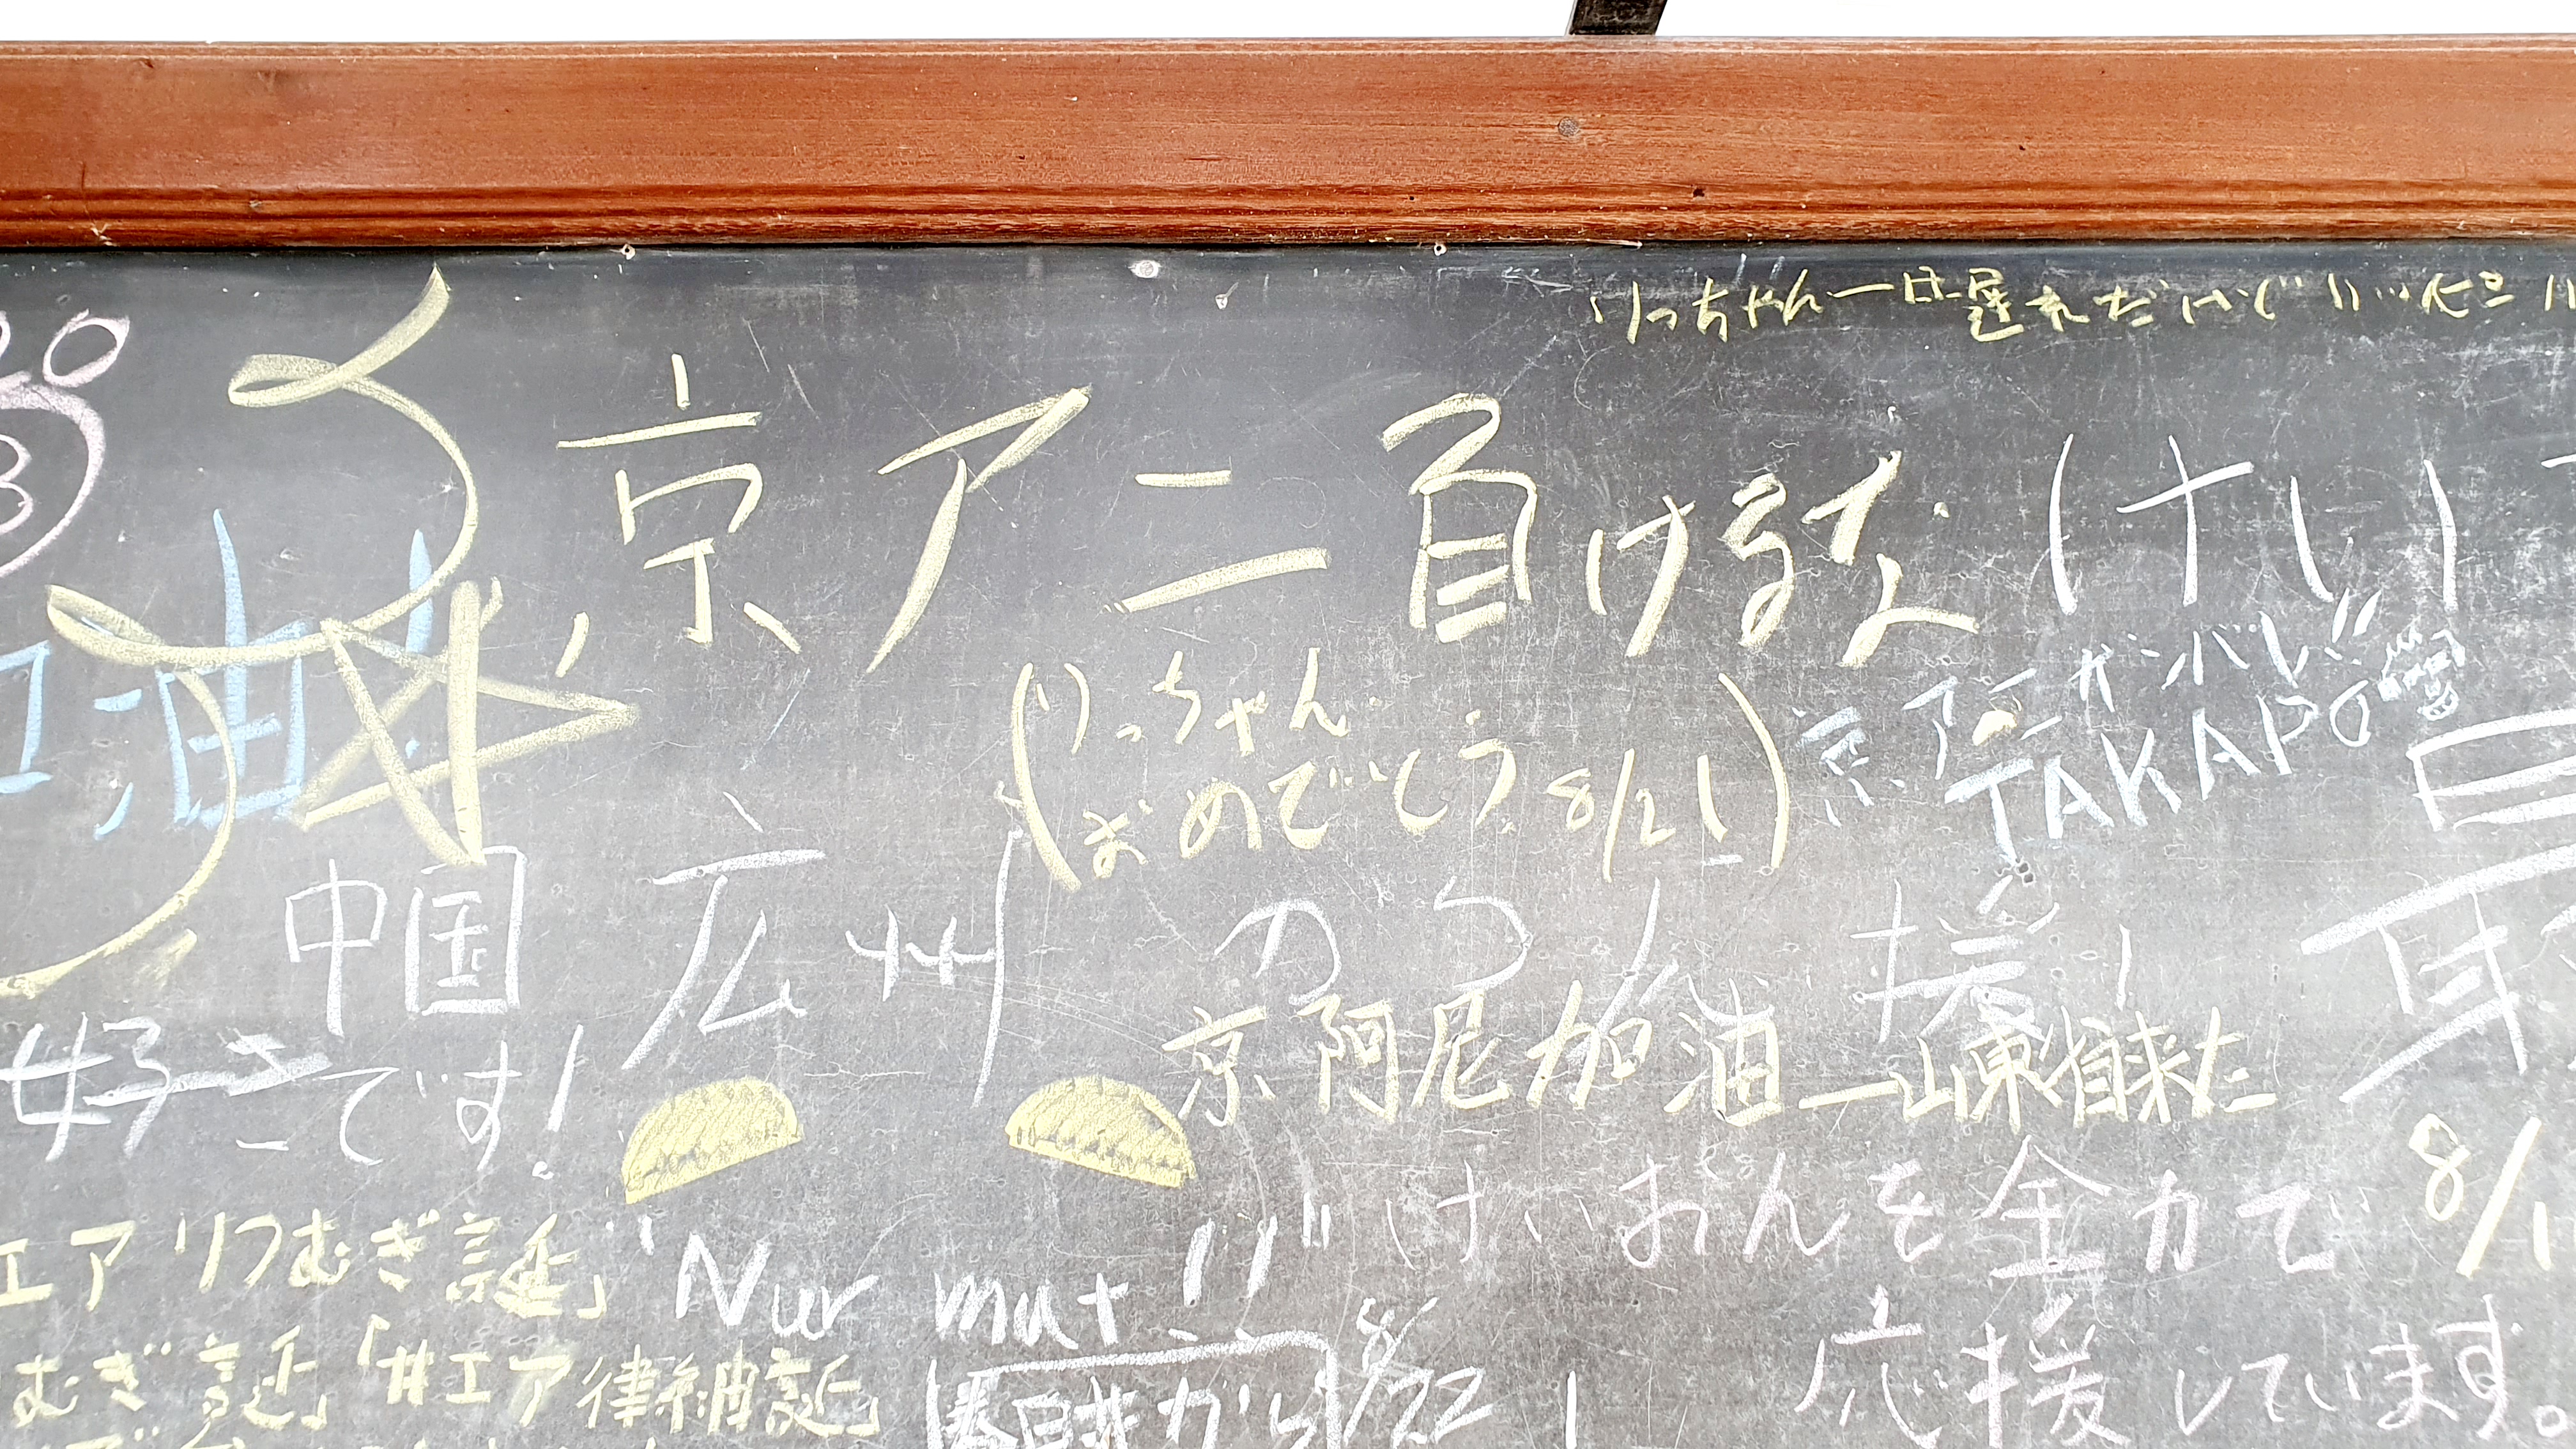 りっちゃん一日遅れだけど
京アニ負けるな (けい)
京アニガンバレ!!
TAKAPO
(りっちゃん
おめでとう 8/21)
油
中国 広州 のう
援
京阿尼加油—山東省来た
好きです!
8/1
けいおんを全力で
応援しています。
エア りつむぎ誕」
"Nur mut !!"
むぎ誕」「#エア律紬誕」
8/22